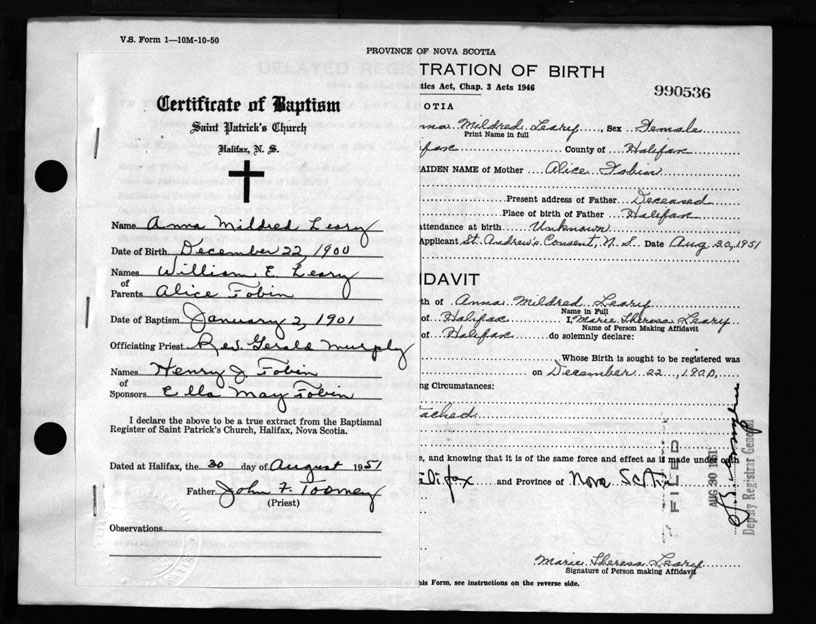 V.S. Form 1—10M-10-50
PROVINCE OF NOVA SCOTIA
DELAYED REGISTRATION OF BIRTH
tics Act, Chap. 3 Acts 1946
990536
Certificate of Baptism
Saint Patrick's Church
Halifax, N. S.
Name Anna Mildred Leary
Date of Birth December 22, 1900
Names of Parents William E. Leary
Alice Tobin
Date of Baptism January 2, 1901
Officiating Priest Rev. Gerald Murphy
Names of Sponsors Henry J. Tobin
Ella May Tobin
I declare the above to be a true extract from the Baptismal
Register of Saint Patrick's Church, Halifax, Nova Scotia.
Dated at Halifax, the 30 day of August 1951
Father John F. Toomey
(Priest)
Observations
OTIA
na Mildred Leary, Sex Female
Print Name in full
fax County of Halifax
AIDEN NAME of Mother Alice Tobin
Present address of Father Deceased
Place of birth of Father Halifax
attendance at birth Unknown
Applicant St. Andrew's Convent, N. S. Date Aug 20, 1951
IDAVIT
th of Anna Mildred Leary
Name in Full
of Halifax I, Marie Theresa Leary
Name of Person Making Affidavit
of Halifax do solemnly declare:
Whose Birth is sought to be registered was
on December 22, 1900,
ng Circumstances:
tached
e, and knowing that it is of the same force and effect as if made under oath
lifax and Province of Nova Scotia
FILED
AUG 30 1951
Deputy Registrar General
Marie Theresa Leary
Signature of Person making Affidavit
his Form, see instructions on the reverse side.